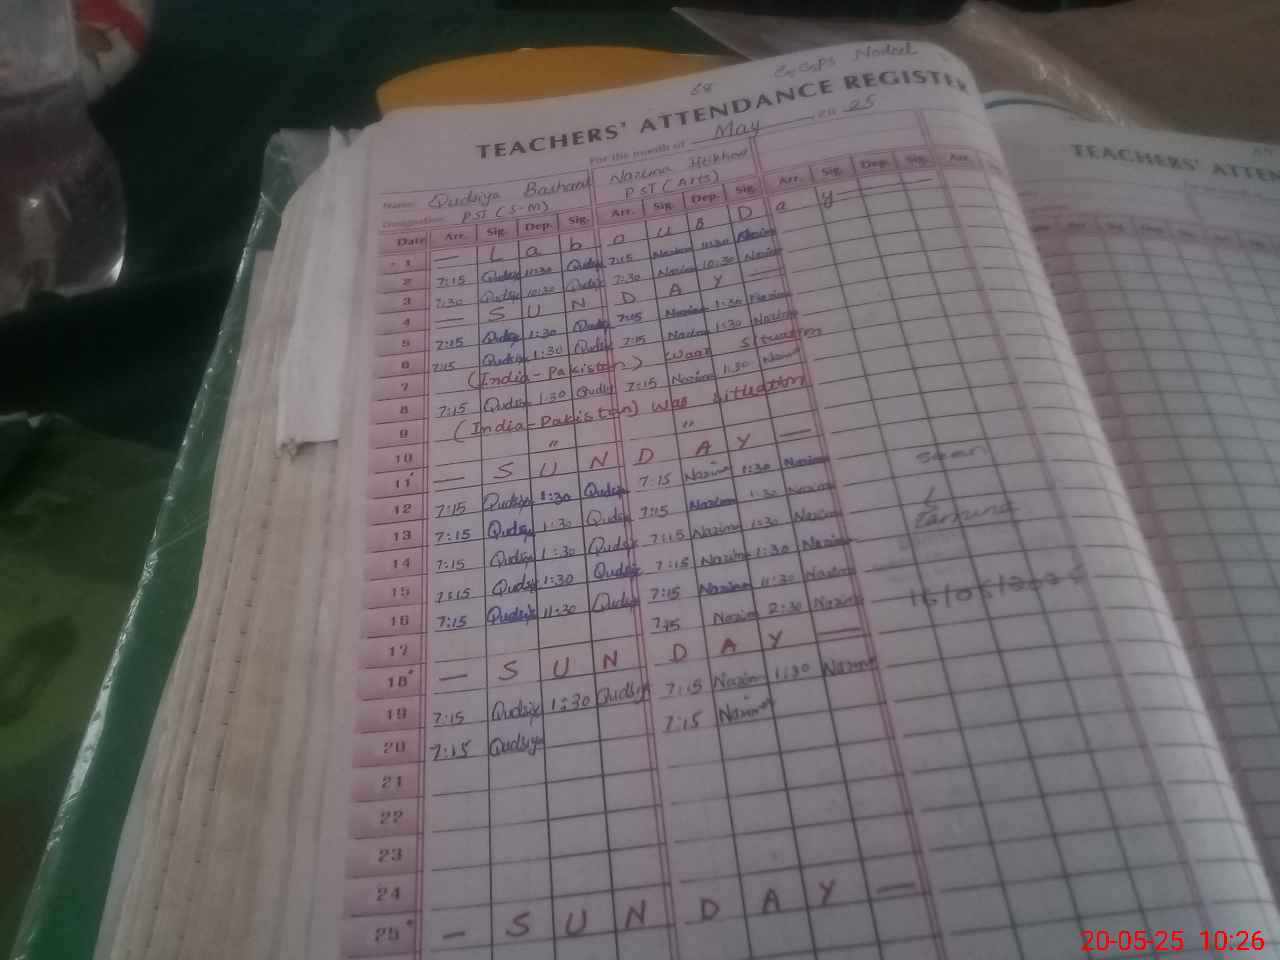 68 GGPS Nodeel
TEACHERS' ATTENDANCE REGISTER
For the month of May 20 25
Name Qudsiya Basharat Nazima
Designation PST (S-M) PST (Arts)
Date Arr. Sig. Dep. Sig. Arr. Sig. Dep. Sig. Arr. Sig. Dep. Sig. Arr.
1 — L a b o u R D a y —
2 7:15 Qudsiya 11:30 Qudsiya 7:15 Nazima 11:30 Nazima
3 7:30 Qudsiya 10:30 Qudsiya 7:30 Nazima 10:30 Nazima
4 — S U N D A Y —
5 7:15 Qudsiya 1:30 Qudsiya 7:15 Nazima 1:30 Nazima
6 7:15 Qudsiya 1:30 Qudsiya 7:15 Nazima 1:30 Nazima
7 (India-Pakistan) Waar situation
8 7:15 Qudsiya 1:30 Qudsiya 7:15 Nazima 1:30 Nazima
9 (India-Pakistan) War situation
10 " "
11 — S U N D A Y —
12 7:15 Qudsiya 1:30 Qudsiya 7:15 Nazima 1:30 Nazima
13 7:15 Qudsiya 1:30 Qudsiya 7:15 Nazima 1:30 Nazima
14 7:15 Qudsiya 1:30 Qudsiya 7:15 Nazima 1:30 Nazima
15 7:15 Qudsiya 1:30 Qudsiya 7:15 Nazima 1:30 Nazima
16 7:15 Qudsiya 11:30 Qudsiya 7:15 Nazima 11:30 Nazima
17 7:15 Nazima 2:30 Nazima
18 — S U N D A Y —
19 7:15 Qudsiya 1:30 Qudsiya 7:15 Nazima 1:30 Nazima
20 7:15 Qudsiya 7:15 Nazima
21
22
23
24
25 — S U N D A Y —
seen
16/05/2025
TEACHERS' ATTEN
20-05-25 10:26